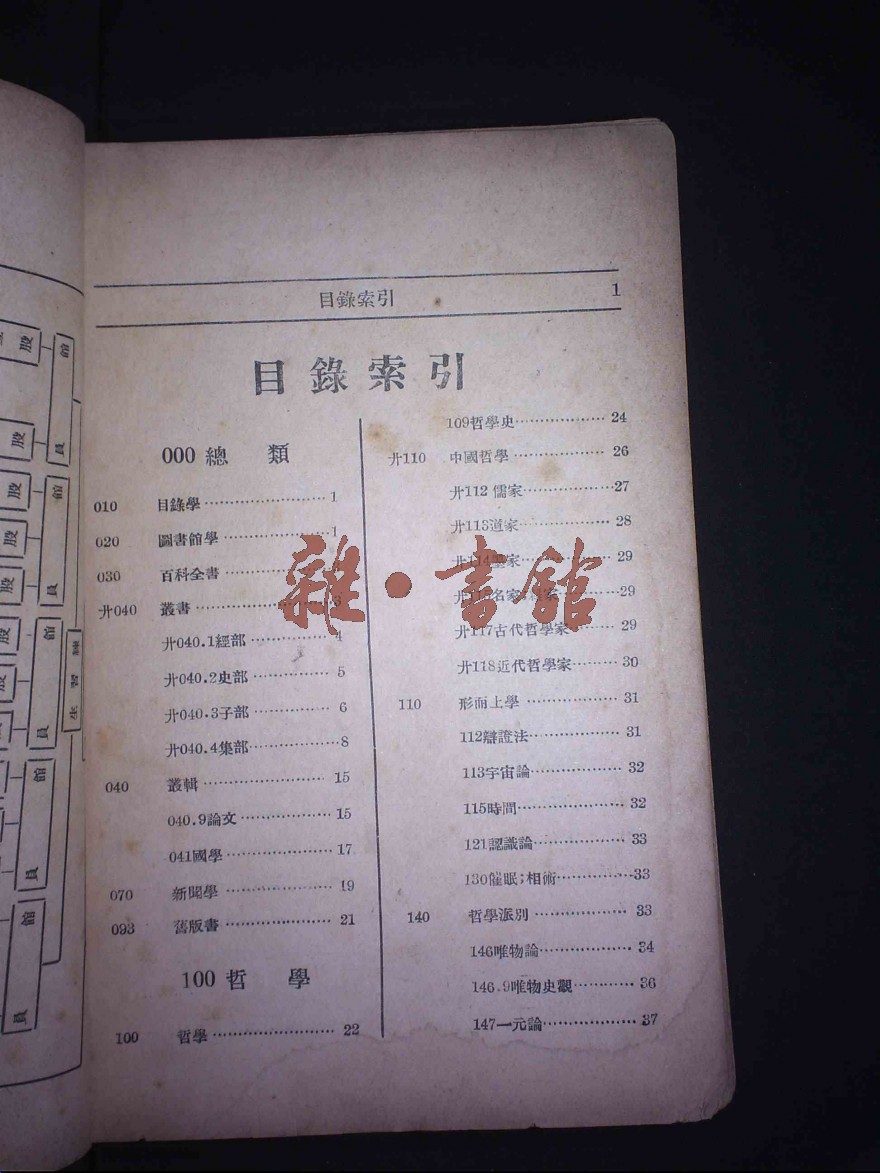 目錄索引 1
目錄索引
000 總 類
010 目錄學 1
020 圖書館學 1
030 百科全書
廾040 叢書 3
廾040.1經部 4
廾040.2史部 5
廾040.3子部 6
廾040.4集部 8
040 叢輯 15
040.9論文 15
041國學 17
070 新聞學 19
093 舊版書 21
100 哲 學
100 哲學 22
109哲學史 24
廾110 中國哲學 26
廾112 儒家 27
廾113道家 28
廾114墨家 29
名家 29
廾117古代哲學家 29
廾118近代哲學家 30
110 形而上學 31
112辯證法 31
113宇宙論 32
115時間 32
121認識論 33
130催眠;相術 33
140 哲學派別 33
146唯物論 34
146.9唯物史觀 36
147一元論 37
雜·書館
股 館
股 員
股 館
股
股 員
股 館
股 員
練習生
館
員
館
員